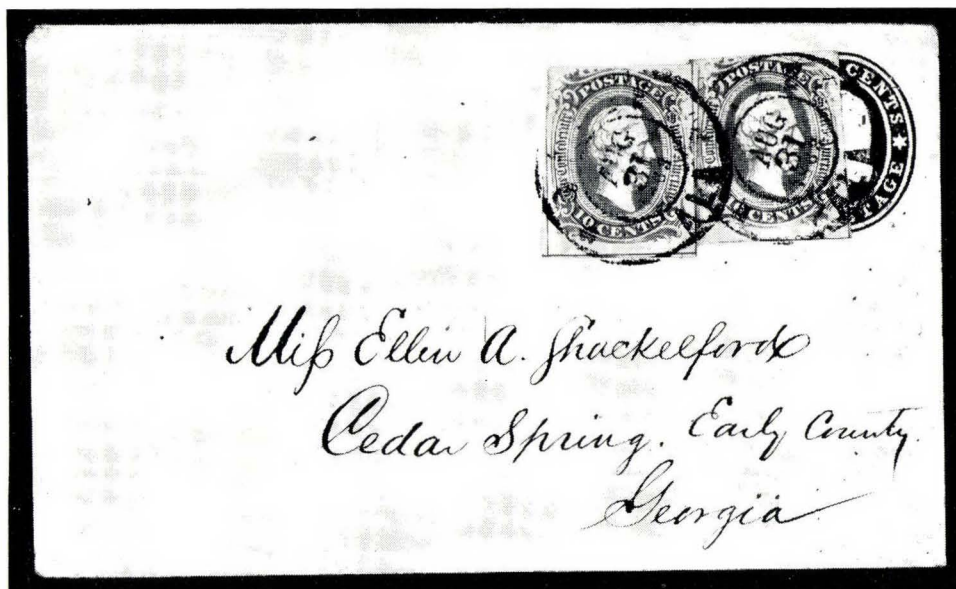 POSTAGE
AUG
31
10 CENTS
POSTAGE
AUG
31
CENTS
CENTS * 
TAGE
Miſs Ellin A. Shackelford
Cedar Spring. Early County.
Georgia